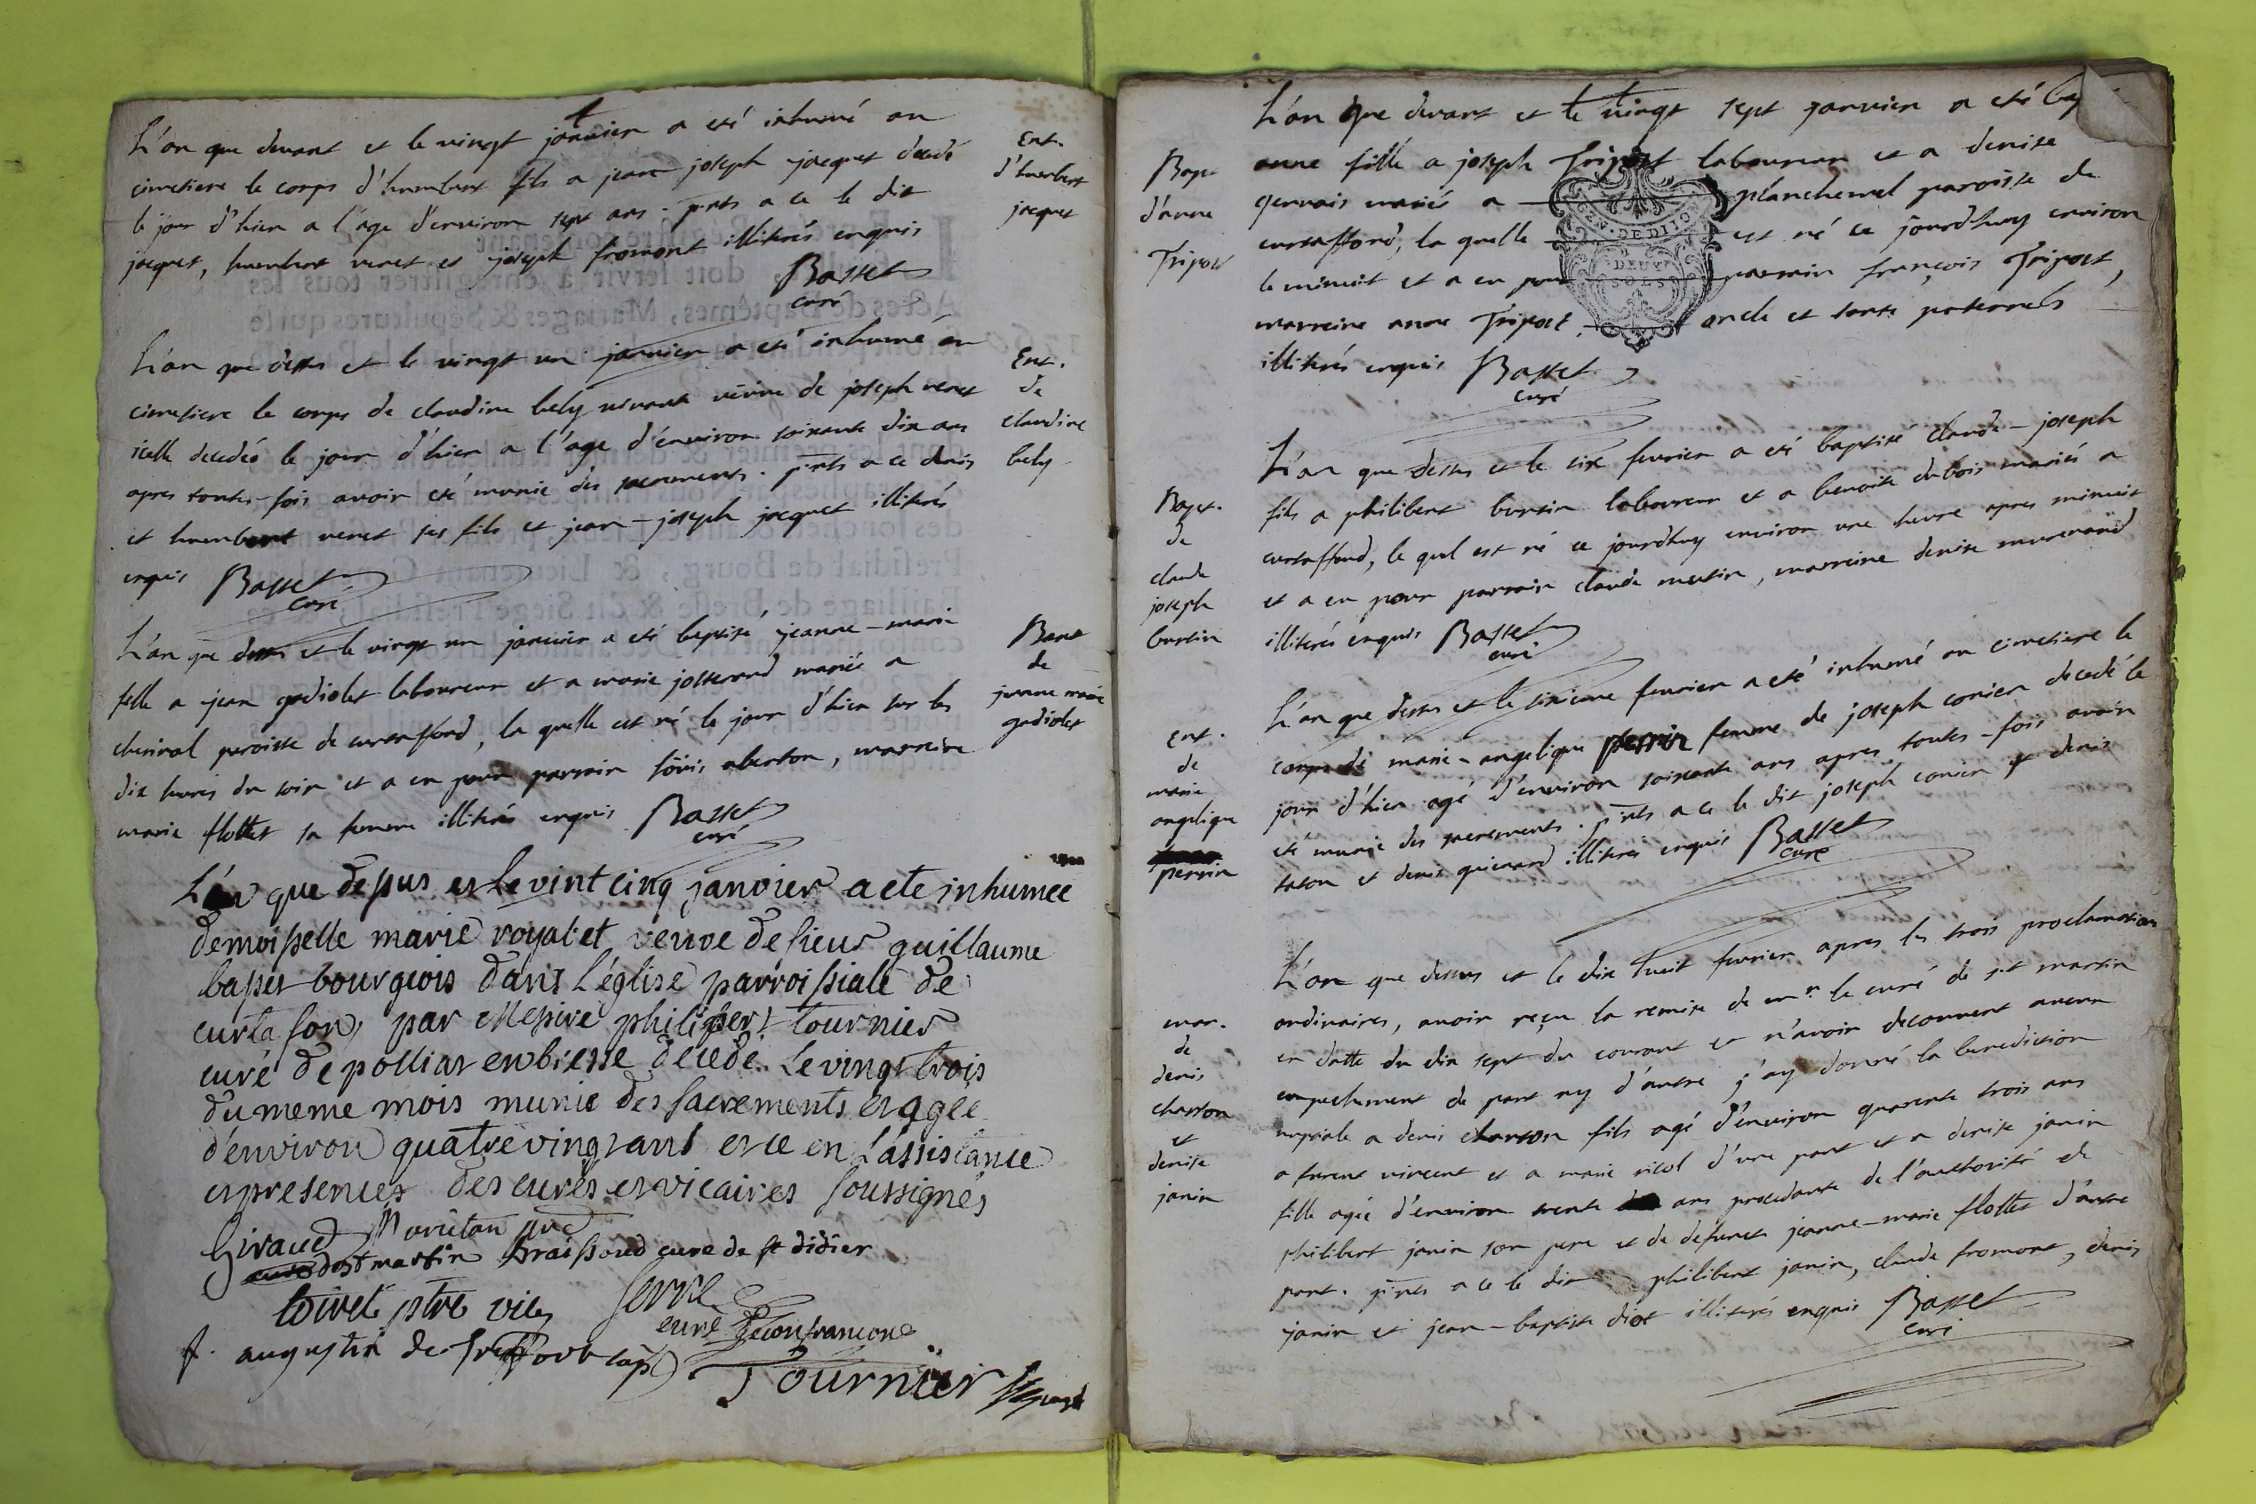 L'an que devant et le vingt janvier a eté inhumé au
cimetiere le corps d'humbert fils a jean joseph jacquet decedé
le jour d'hier a l'age d'environ sept ans. pnts a ce le dit
jacquet, humbert venet et joseph fromont illiterés enquis
Basset
curé
Ent.
d'humbert
jacquet
L'an que dessus et le vingt un janvier a eté inhumé au
cimetiere le corps de claudine bely vivante veuve de joseph venet
icelle decedée le jour d'hier a l'age d'environ soixante dix ans
apres toutes-fois avoir eté munie des sacrements. pnts a ce denis
et humbert venet ses fils et jean-joseph jacquet illiterés
enquis Basset
curé
Ent.
de
claudine
bely
L'an que dessus et le vingt un janvier a eté baptisé jeanne-marie
fille a jean gadiolet laboureur et a marie josserand mariés a
cheminal paroisse de curtafford, la quelle est né le jour d'hier sur les
dix heures du soir et a eu pour parrain loüis aberton, marreine
marie flottet sa femme illiterés enquis Basset
curé
Bapt
de
jeanne marie
gadiolet
L'an que depus et le vint cinq janvier a ete inhumee
demoiselle marie royalet veuve de sieur guillaume
basset bourgeois dans l'église parroissiale de
curtafon, par Messire philipert tournier
curé de polliat en bresse decedé le vingt trois
du meme mois munie des sacrements et agée
d'environ quatre vingt ans et ce en l'assistance
et presences des curés et vicaires soussignés
Giraud
de st martin Braissoud curé de st didier
loiret ptre vic serre
curé Geconfrancone
f. augustin de Treffort cap
Tournier
L'an que devant et le vingt sept janvier a eté bap
anne fille a joseph Tripoz laboureur et a denise
gervais mariés a planchemel paroisse de
curtafford, la quelle est né ce jourdhuy environ
le minuit et a eu pour parrain françois Tripoz,
marreine anne Tripoz, oncle et tante paternels
illiterés enquis Basset
curé
GEN. DE DIJON
DEUX
SOLS
Bapt
d'anne
Tripoz
L'an que dessus et le six fevrier a eté baptisé claude-joseph
fils a philibert burtin laboureur et a benoite dubois mariés a
curtafford, le quel est né ce jourdhuy environ une heure apres minuit
et a eu pour parrain claude mutin, marreine denise
illiterés enquis Basset
curé
Bapt.
de
claude
joseph
burtin
L'an que dessus et le sixieme fevrier a eté inhumé au cimetiere le
corps de marie-angelique perrin femme de joseph conier decedé le
jour d'hier agé d'environ soixante ans apres toutes-fois avoir
eté munie des sacrements. pnts a ce le dit joseph conier et denis
taton et denis guienard illiteres enquis Basset
curé
ent.
de
marie
angelique
perrin
L'an que dessus et le dix huit fevrier apres les trois proclamations
ordinaires, avoir reçu la remise de mr le curé de st martin
en datte du dix sept du courant et n'avoir decouvert aucun
empechement de part ny d'autre j'ay donné la benediction
nuptiale a denis charton fils agé d'environ quarente trois ans
a furent vincent et a marie nicol d'une part et a denise janin
fille agée d'environ trente ans procedante de l'authorité de
philibert janin son pere et de defunte jeanne-marie flottet d'autre
part. pnts a ce le dit philibert janin, claude fromont, denis
janin et jean-baptiste diot illiterés enquis Basset
curé
mar.
de
denis
charton
et
denise
janin